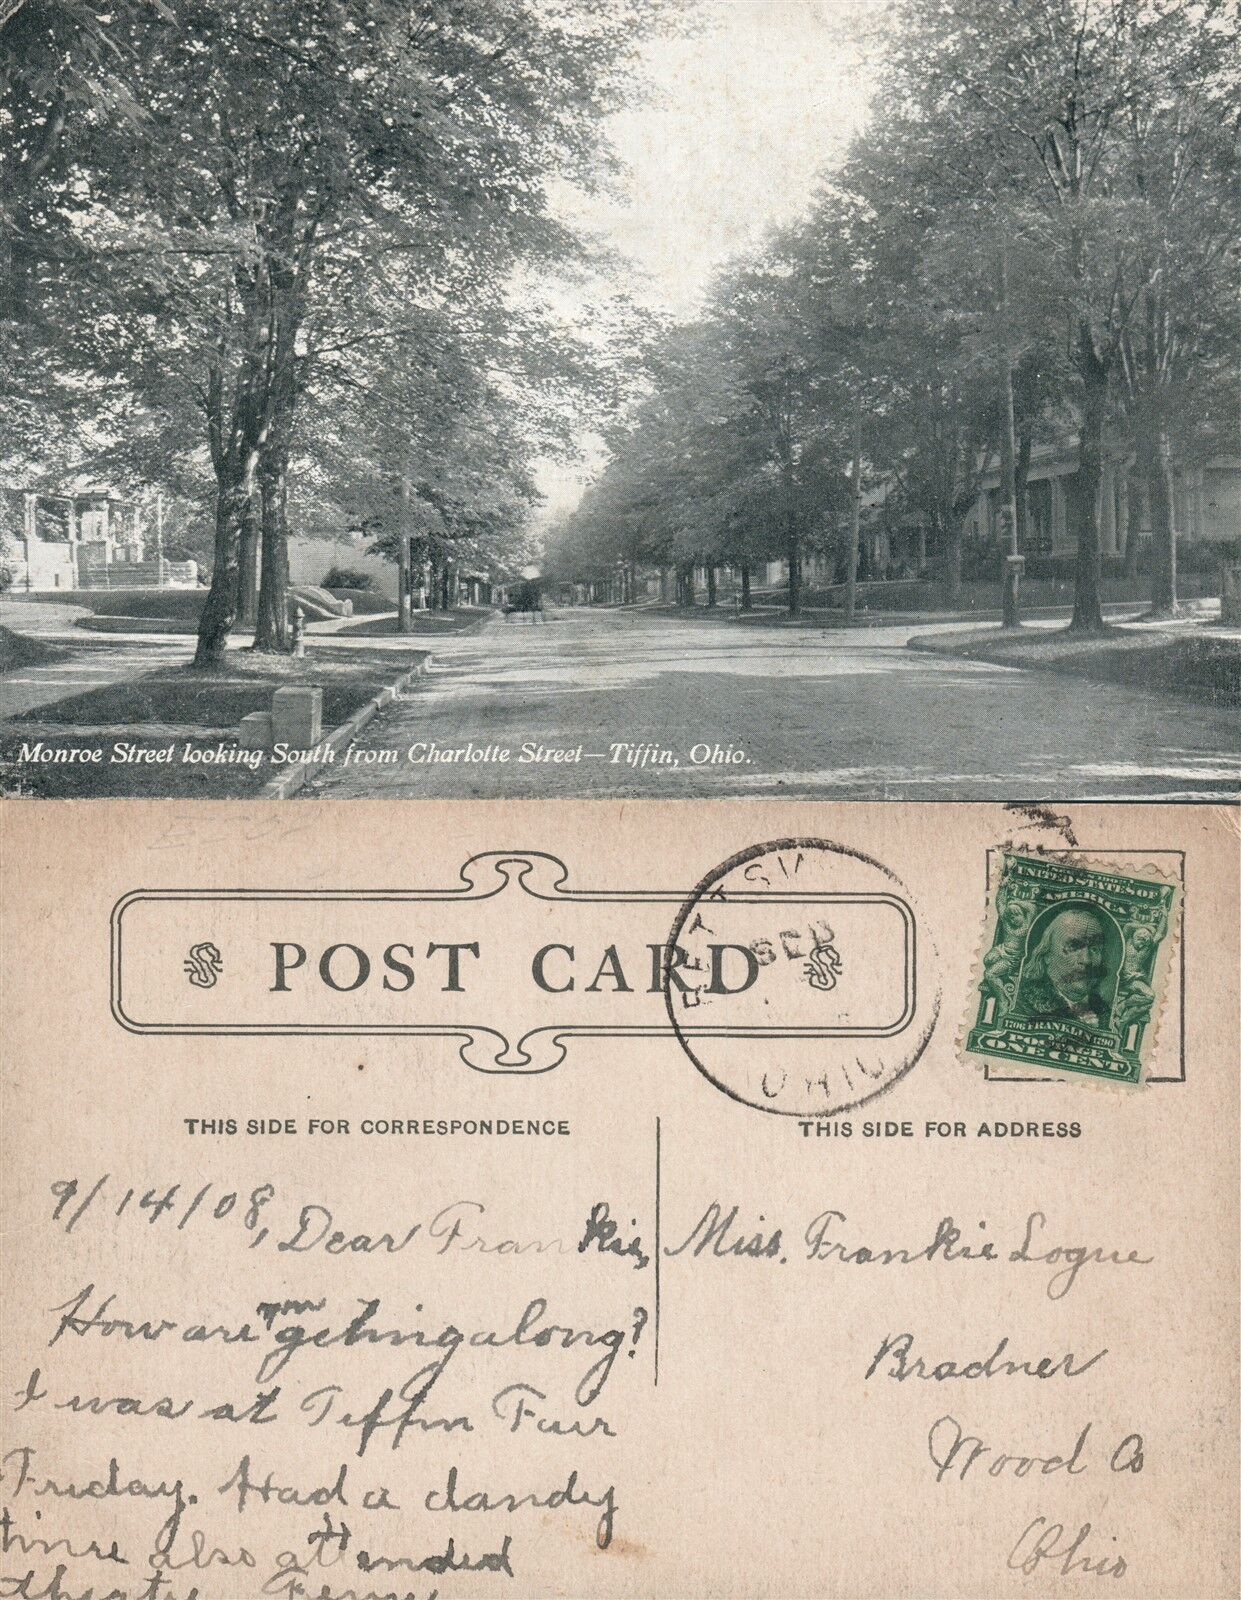 Monroe Street looking South from Charlotte Street—Tiffin, Ohio.
POST CARD
BETTSVI
SEP
OHIO
UNITED STATES OF
AMERICA
1 1
1706 FRANKLIN 1790
POSTAGE
ONE CENT
THIS SIDE FOR CORRESPONDENCE
THIS SIDE FOR ADDRESS
9/14/08, Dear Frankie,
How are you getting along?
I was at Tiffin Fair
Friday. Had a dandy
time also attended
Miss. Frankie Logue
Bradner
Wood Co
Ohio